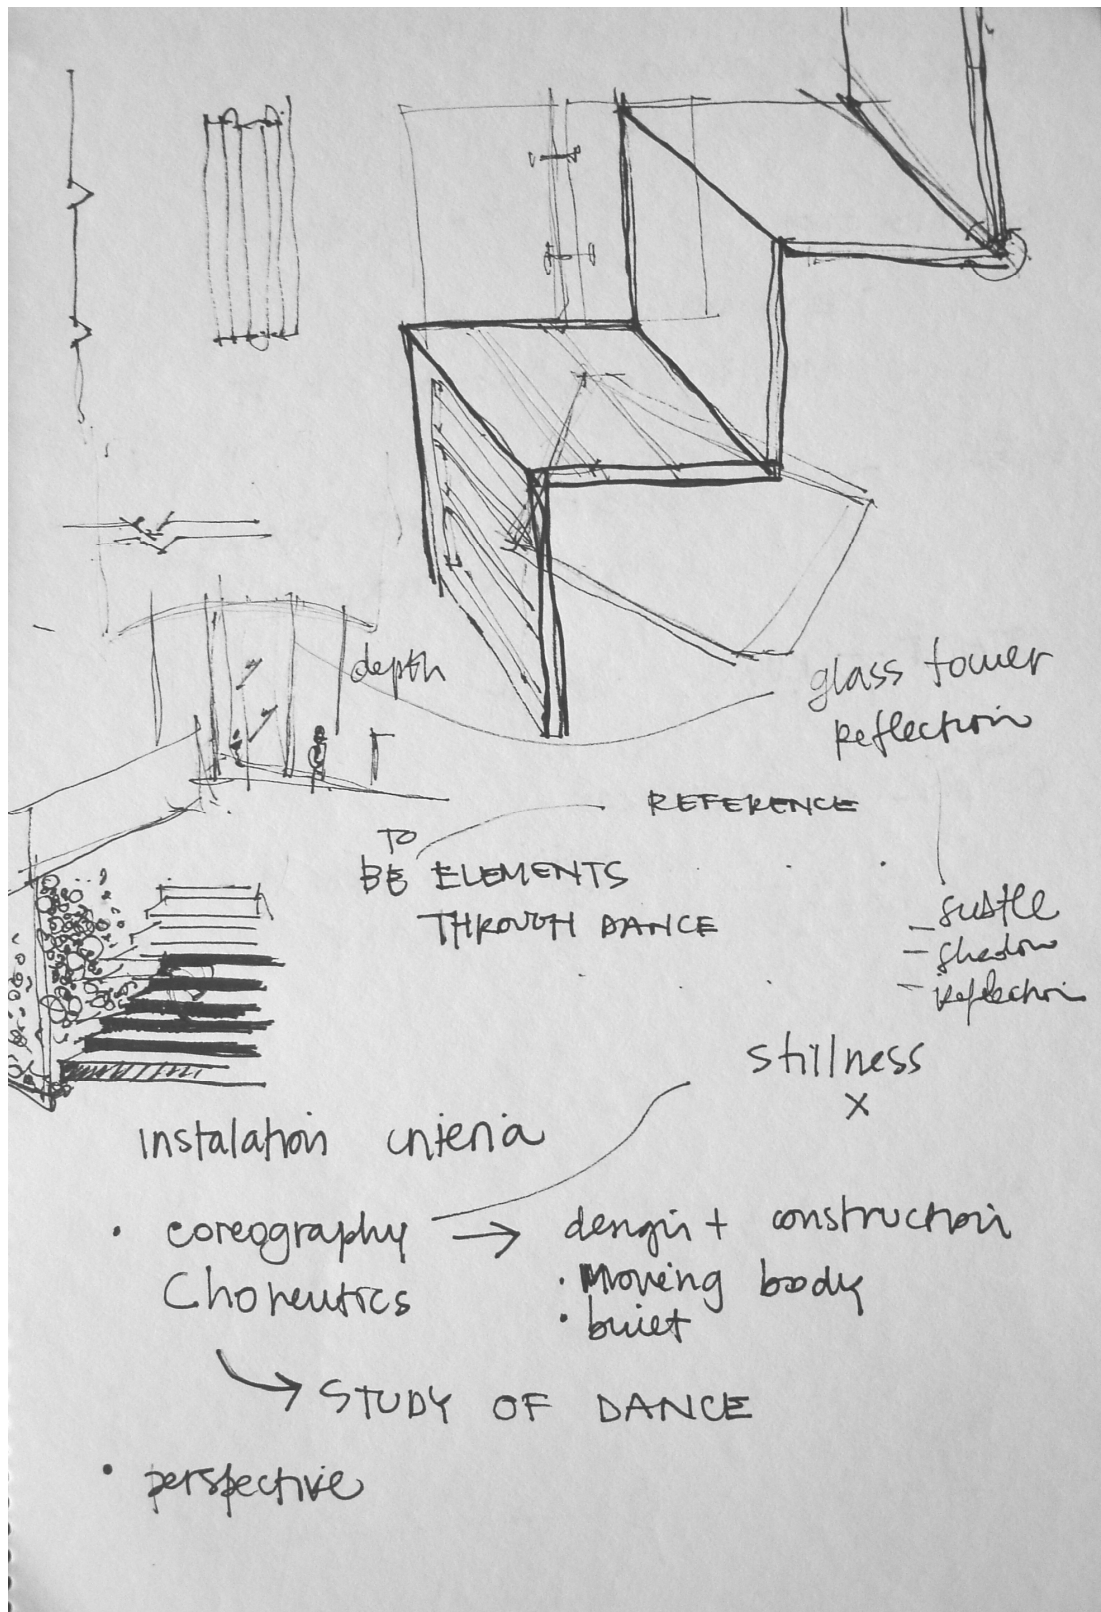 depth
glass tower
reflection
REFERENCE
TO
BE ELEMENTS
THROUGH DANCE
subtle
– shadow
– reflection
stillness
x
instalation criteria
• coreography → design + construction
Choreutics
• Moving body
• quiet
→ STUDY OF DANCE
• perspective